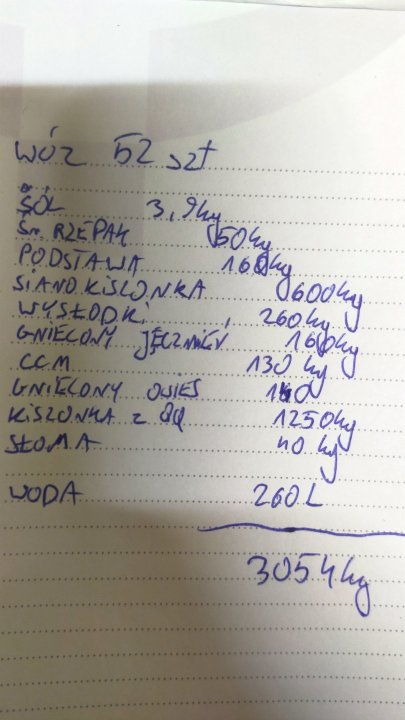 WÓZ 52 szt
SÓL 3,9kg
ŚR. RZEPAK 150kg
PODSTAWA 160kg
SIANOKISZONKA 600kg
WYSŁODKI 260kg
GNIECONY JĘCZMIEŃ 160kg
CCM 130 kg
GNIECONY OWIES 140
KISZONKA Z QQ 1250kg
SŁOMA 40 kg
WODA 260L
3054kg